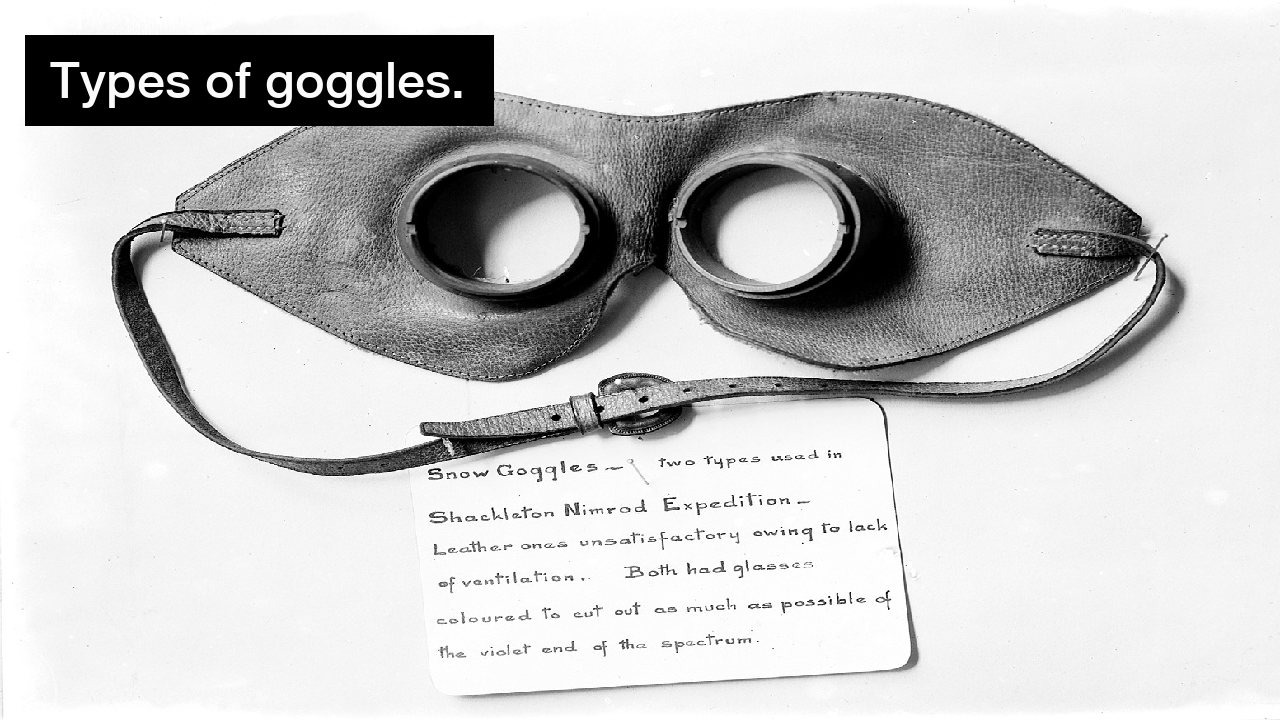 Types of goggles.
Snow Goggles – two types used in
Shackleton Nimrod Expedition –
Leather ones unsatisfactory owing to lack
of ventilation. Both had glasses
coloured to cut out as much as possible of
the violet end of the spectrum.